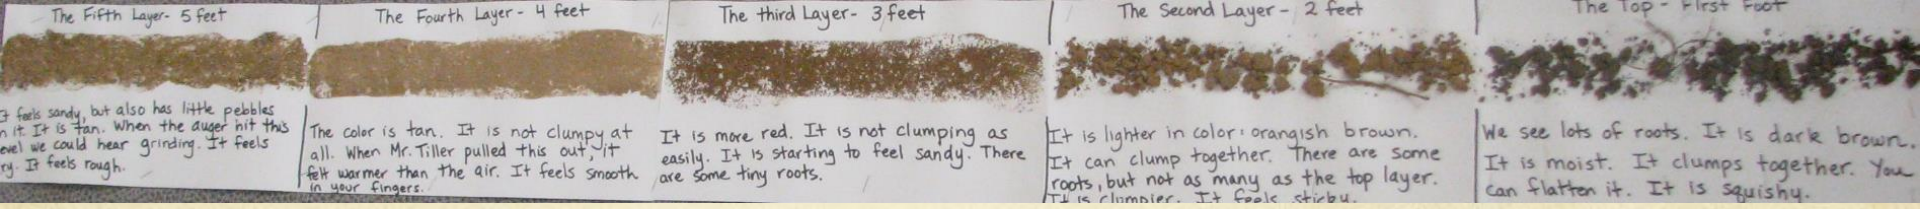 The Fifth Layer- 5 feet
It feels sandy, but also has little pebbles
in it. It is tan. When the auger hit this
level we could hear grinding. It feels
. It feels rough.
The Fourth Layer- 4 feet
The color is tan. It is not clumpy at
all. When Mr. Tiller pulled this out, it
felt warmer than the air. It feels smooth
in your fingers.
The third Layer- 3 feet
It is more red. It is not clumping as
easily. It is starting to feel sandy. There
are some tiny roots.
The Second Layer- 2 feet
It is lighter in color: orangish brown.
It can clump together. There are some
roots, but not as many as the top layer.
It is clumpier. It feels sticky.
The Top - First Foot
We see lots of roots. It is dark brown.
It is moist. It clumps together. You
can flatten it. It is squishy.